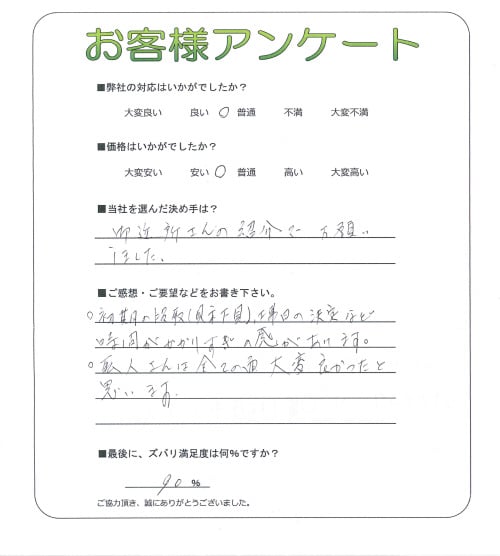 お客様アンケート
■弊社の対応はいかがでしたか?
大変良い 良い ○ 普通 不満 大変不満
■価格はいかがでしたか?
大変安い 安い ○ 普通 高い 大変高い
■当社を選んだ決め手は?
御近所さんの紹介でお願い
しました。
■ご感想・ご要望などをお書き下さい。
○初期の段取( )、工事日の決定など
時間がかかりすぎの感があります。
○職人さんは全ての面大変良かったと
思います。
■最後に、ズバリ満足度は何%ですか?
90 %
ご協力頂き、誠にありがとうございました。